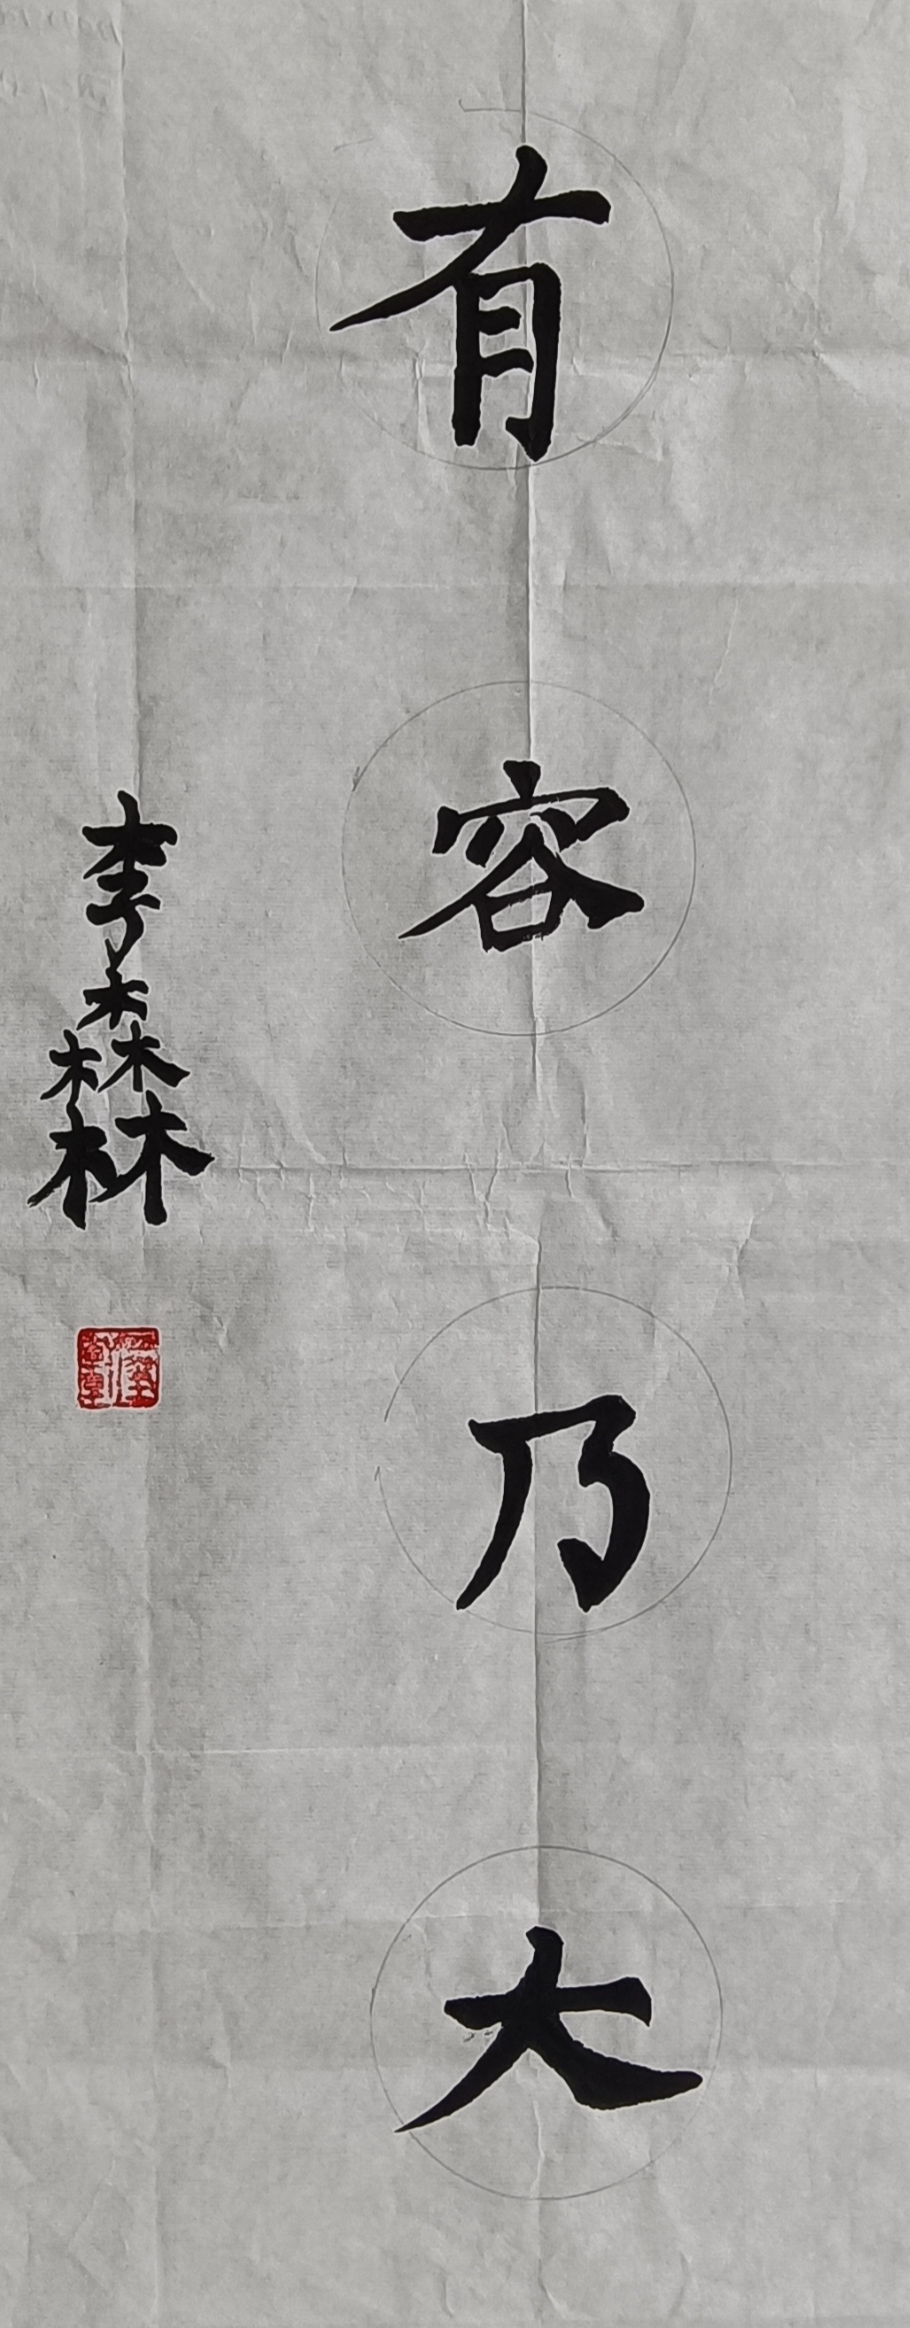 有容乃大
李森林